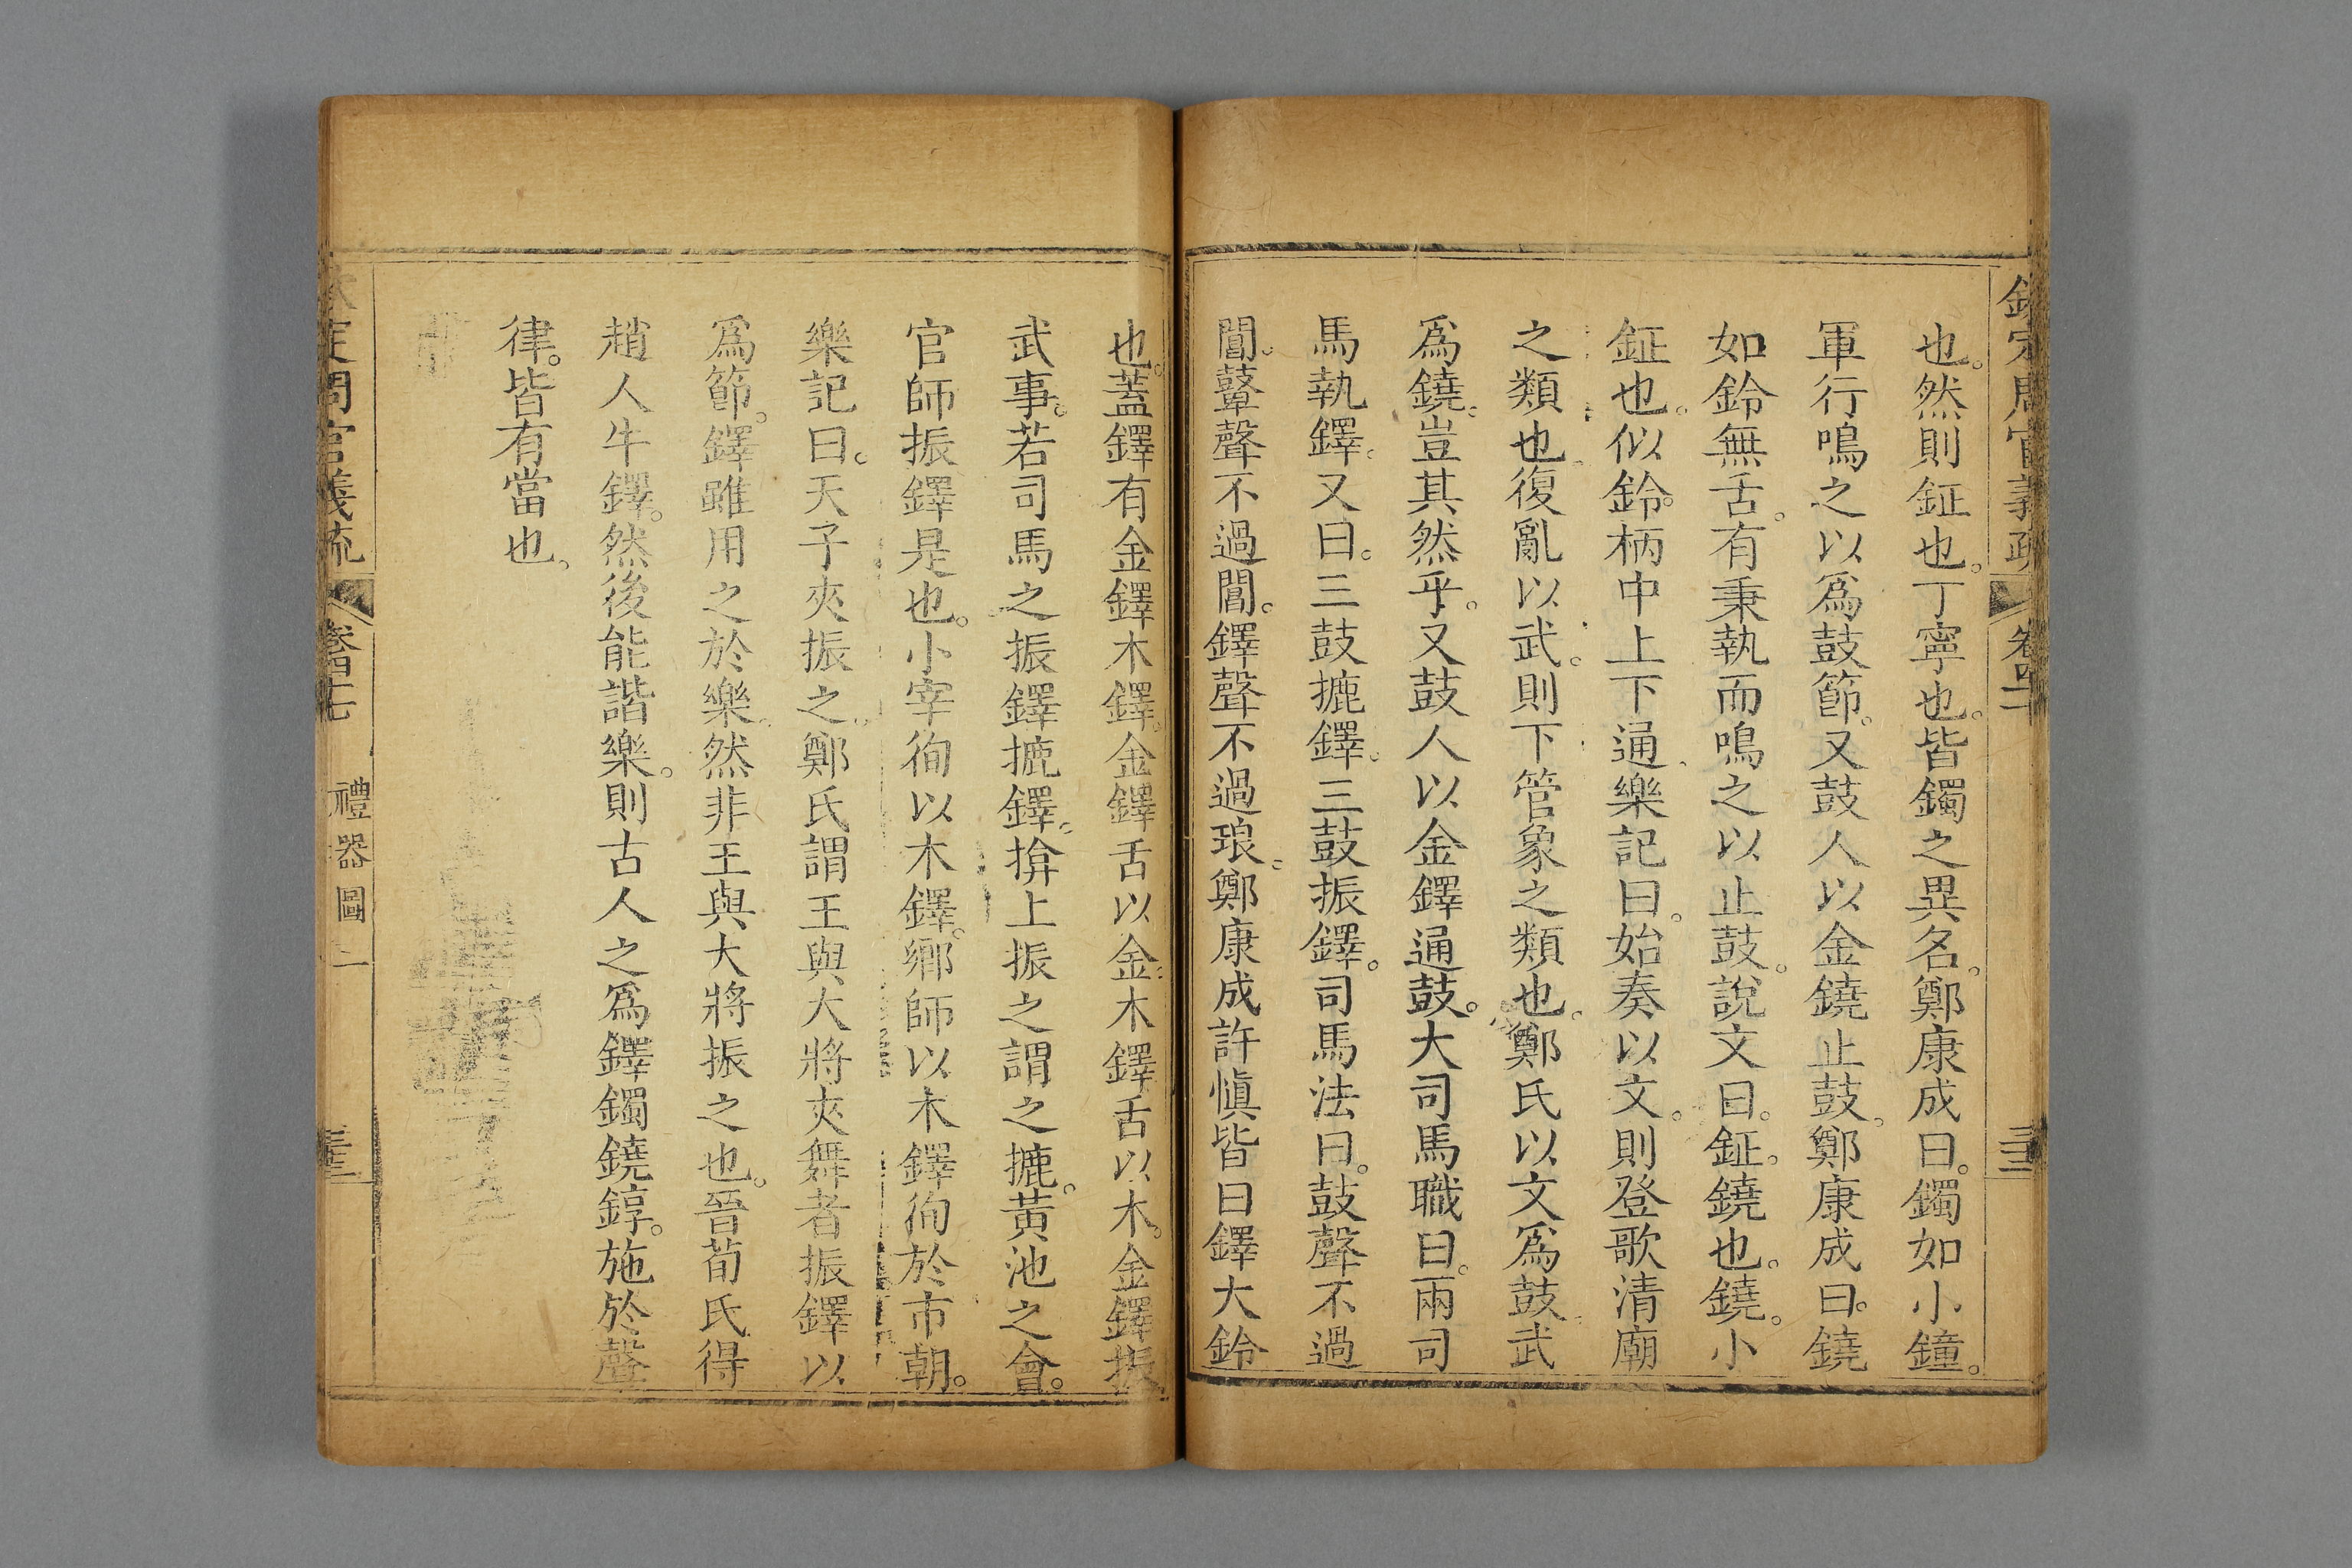 也。然則鉦也。丁寧也。皆鐲之異名。鄭康成曰。鐲如小鐘。
軍行鳴之以爲鼓節。又鼓人以金鐃止鼓。鄭康成曰。鐃
如鈴無舌。有秉執而鳴之以止鼓。說文曰。鉦。鐃也。鐃。小
鉦也。似鈴。柄中上下通。樂記曰。始奏以文。則登歌清廟
之類也。復亂以武。則下管象之類也。鄭氏以文爲鼓。武
爲鐃。豈其然乎。又鼓人以金鐸通鼓。大司馬職曰。兩司
馬執鐸。又曰。三鼓摝鐸。三鼓振鐸。司馬法曰。鼓聲不過
閶。鼙聲不過闒。鐸聲不過琅。鄭康成許慎皆曰鐸大鈴
也。蓋鐸有金鐸木鐸。金鐸舌以金。木鐸舌以木。金鐸振
武事。若司馬之振鐸摝鐸。揜上振之謂之摝。黃池之會。
官師振鐸是也。小宰徇以木鐸。鄉師以木鐸徇於市朝。
樂記曰。天子夾振之。鄭氏謂王與大將夾舞者振鐸以
爲節。鐸雖用之於樂。然非王與大將振之也。晉荀氏得
趙人牛鐸。然後能諧樂。則古人之爲鐸鐲鐃錞。施於聲
律。皆有當也。
定周官義疏
禮器圖二